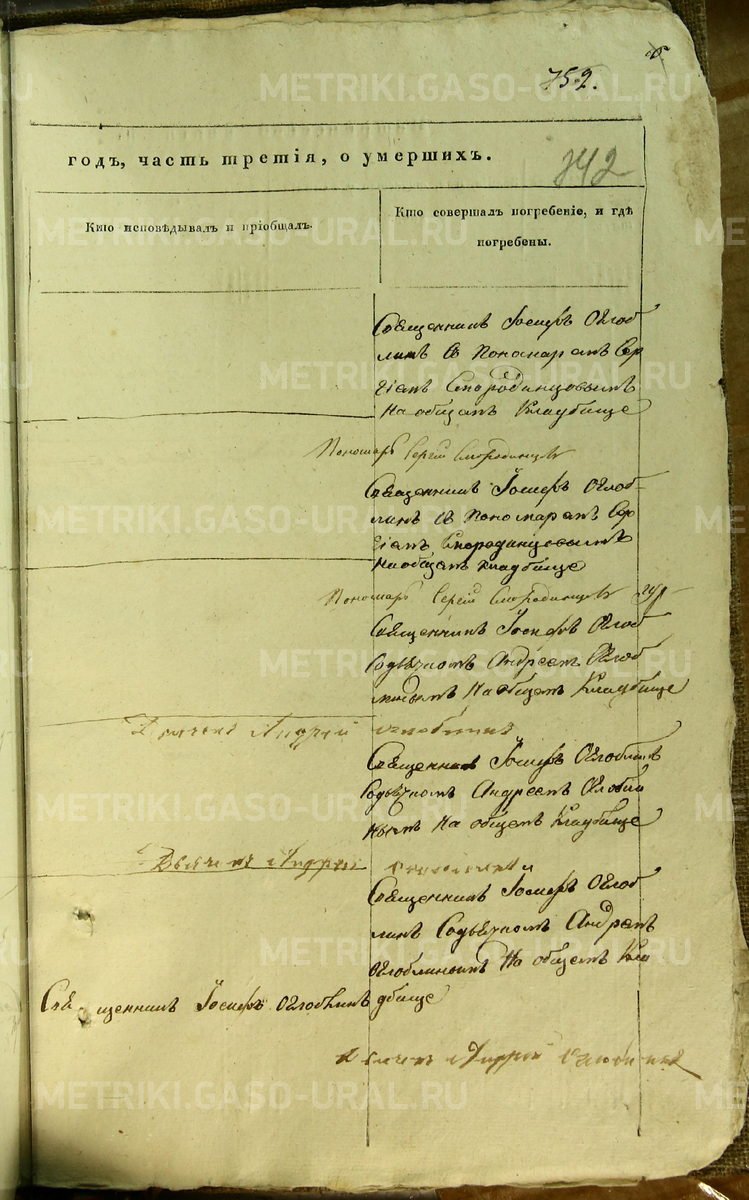 752.
годъ, часть третія, о умершихъ.
342
Кто исповѣдывалъ и пріобщалъ.
Кто совершалъ погребеніе, и гдѣ
погребены.
Священникъ Іосифъ Оглоб
линъ съ пономаремъ Сер
гіемъ Смородинцовымъ
на общемъ кладбище
Пономарь Сергій Смородинцовъ
Священникъ Іосифъ Оглоб-
линъ съ пономаремъ Сер
гіемъ Смородинцовымъ
на общемъ кладбище
Пономарь Сергій Смородинцовъ
Священникъ Іосифъ Оглоб
содьячкомъ Андреемъ Оглоб
линымъ на общемъ кладбище
Дьячекъ Андрей Оглоблинъ
Священникъ Іосифъ Оглоблинъ
содьячкомъ Андреемъ Оглобли
нымъ на общемъ кладбище
Дьячекъ Андрей Оглоблинъ
Священникъ Іосифъ Оглоб
линъ содьячкомъ Андреемъ
Оглоблинымъ на общемъ кла
дбище
Священникъ Іосифъ Оглоблинъ
Дьячекъ Андрей Оглоблинъ
METRIKI.GASO-URAL.RU